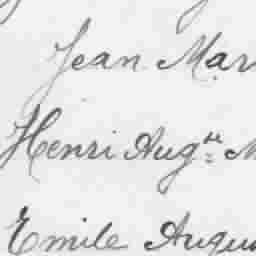 Jean Mar
Henri Augte M
Emile Augu